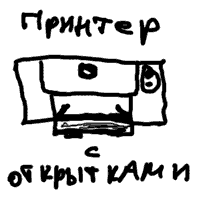 Принтер
с
открытками